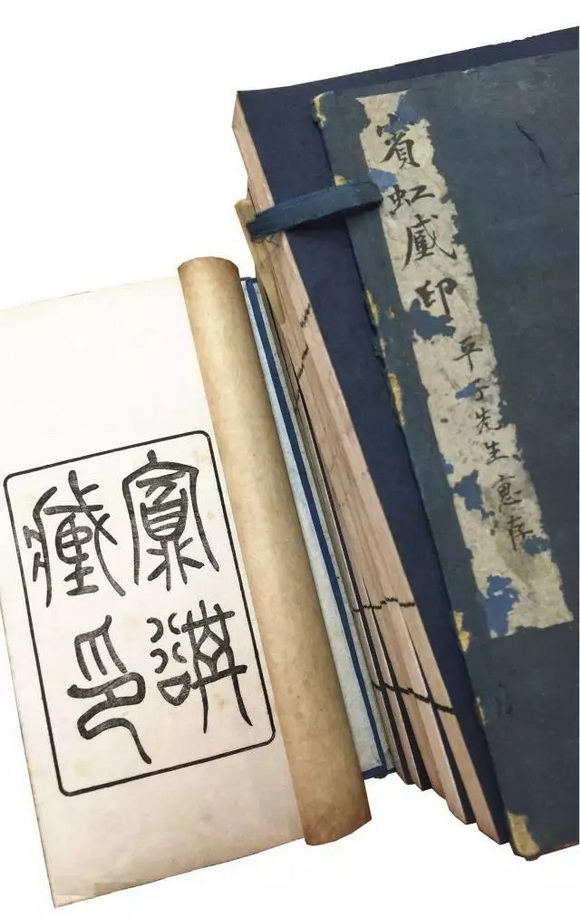 賓虹藏印 平子先生惠存
賓虹
藏印